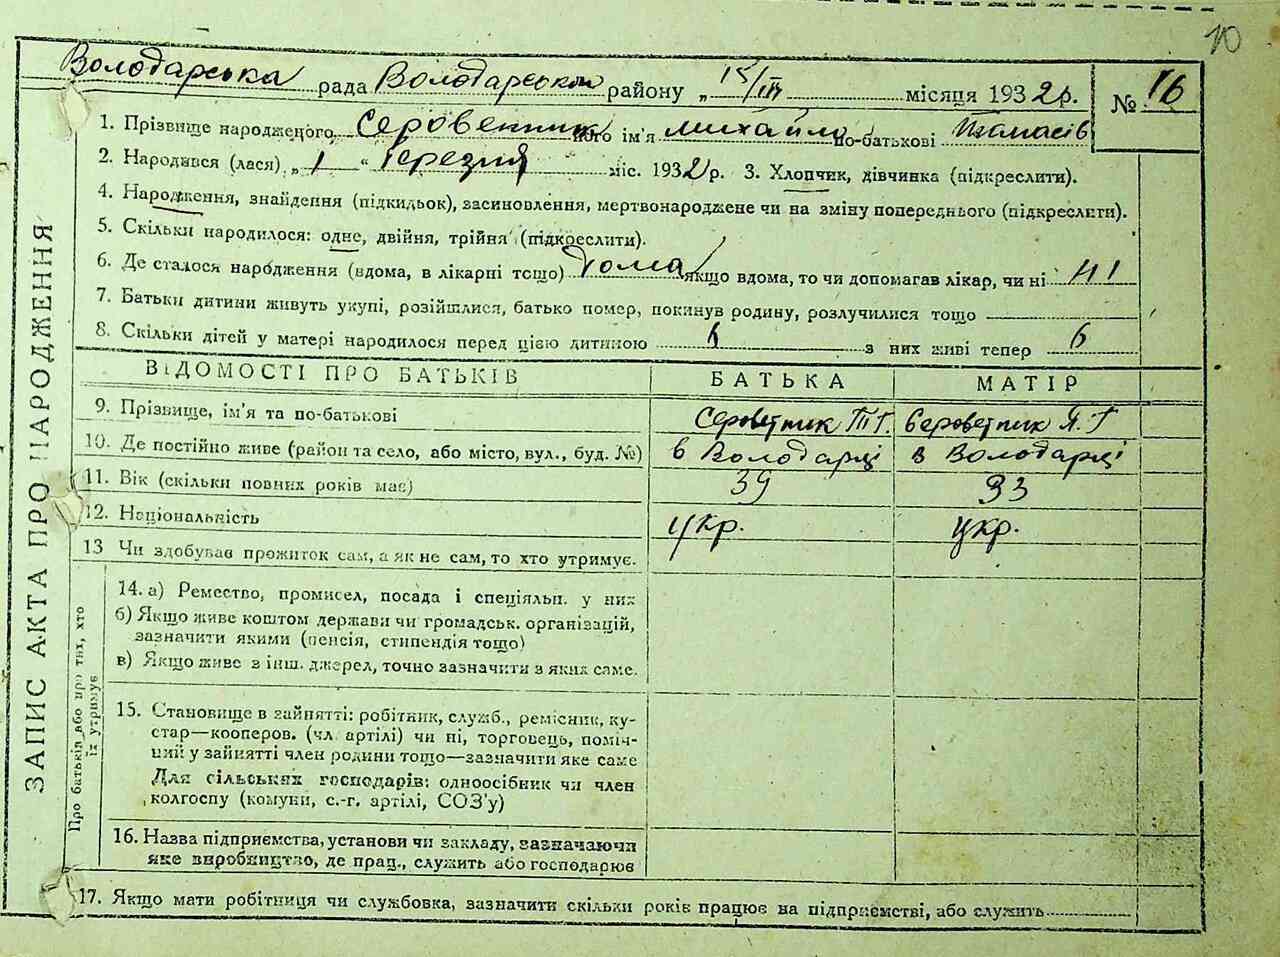 10
Володарська рада Володарськом району „ 15/III місяця 1932 р. № 16
1. Прізвище народженого Серовенник його ім'я Михайло по-батькові
2. Народився (лася) „ 1 “ березня міс. 1932 р. 3. Хлопчик, дівчинка (підкреслити).
4. Народження, знайдення (підкидьок), засиновлення, мертвонароджене чи на зміну попереднього (підкреслити).
5. Скільки народилося: одне, двійня, трійня (підкреслити).
6. Де сталося народження (вдома, в лікарні тощо) дома якщо вдома, то чи допомагав лікар, чи ні ні
7. Батьки дитини живуть укупі, розійшлися, батько помер, покинув родину, розлучилися тощо
8. Скільки дітей у матері народилося перед цією дитиною 6 з них живі тепер 6
ВІДОМОСТІ ПРО БАТЬКІВ БАТЬКА МАТІР
9. Прізвище, ім'я та по-батькові Сероветник Т Г. Сероветник Я. Г
10. Де постійно живе (район та село, або місто, вул., буд. №) в Володарці в Володарці
11. Вік (скільки повних років має) 39 33
12. Національність укр. укр.
13 Чи здобував прожиток сам, а як не сам, то хто утримує.
14. а) Ремество, промисел, посада і спеціяльн. у них
б) Якщо живе коштом держави чи громадськ. організацій,
зазначити якими (пенсія, стипендія тощо)
в) Якщо живе з інш. джерел, точно зазначити з яких саме.
15. Становище в зайнятті: робітник, служб., ремісник, ку-
стар—кооперов. (чл. артілі) чи ні, торговець, поміч-
ний у зайнятті член родини тощо—зазначити яке саме
Для сільських господарів: одноосібник чи член
колгоспу (комуни, с.-г. артілі, СОЗ'у)
16. Назва підприємства, установи чи закладу, зазначаючи
яке виробництво, де прац., служить або господарює
17. Якщо мати робітниця чи службовка, зазначити скільки років працює на підприємстві, або служить
ЗАПИС АКТА ПРО НАРОДЖЕННЯ
Про батьків або про тих, хто
їх утримує